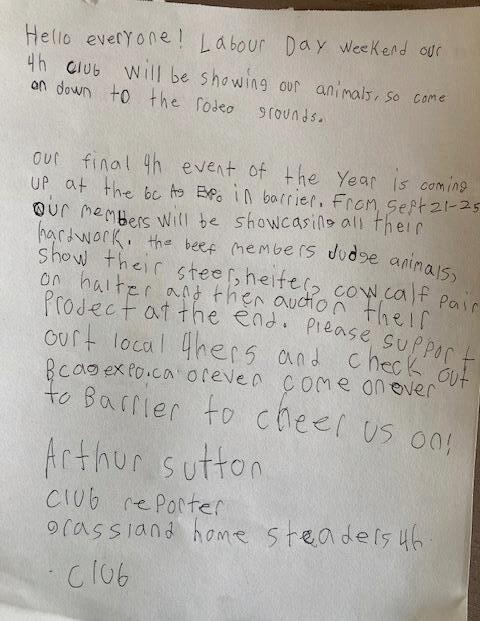 Hello everyone! Labour Day weekend our
4h club will be showing our animals, so come
on down to the rodeo grounds.
our final 4h event of the Year is coming
up at the bc Ag Expo in barrier. From Sept 21-25
our members will be showcasing all their
hardwork. the beef members Judge animals,
show their steer, heifer, cow calf pair
on halter and then auction their
Prodect at the end. Please support
ourt local 4hers and check out
Bcagexpo.ca orever come on over
to Barrier to cheer us on!
Arthur Sutton
club reporter
grassland home steaders 4h
club